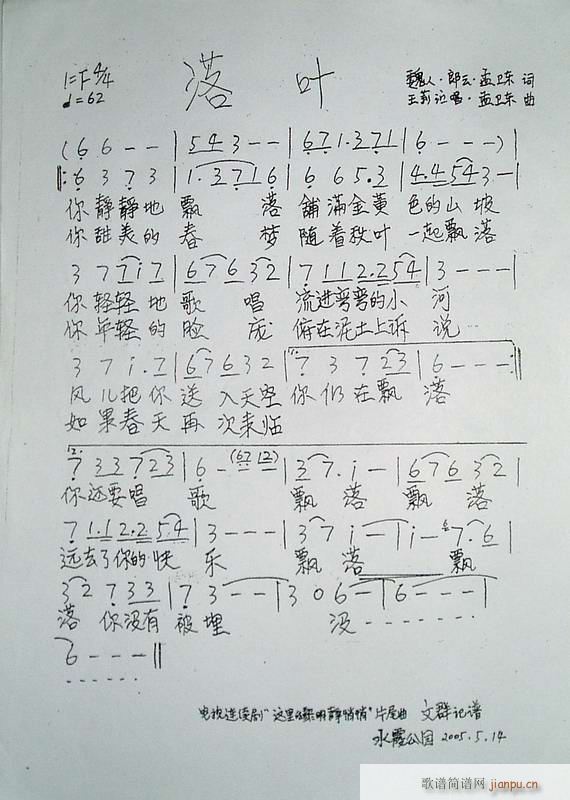 落叶
1=F 4/4
♩=62
魏人·郎云·孟卫东 词
王莉 记唱·孟卫东 曲
(6 6 - - | 5 4 3 - - | 6 7 1. 3 7 1 | 6 - - - )|
‖: 6 3 7 3 | 1. 3 7 1 6 | 6 6 5. 3 | 4. 4 5 4 3 - |
你静静地 飘 落 铺满金黄 色的山坡
你甜美的 春 梦 随着秋叶 一起飘落
3 7 7 i 7 | 6 7 6 3 2 | 7 1 1 2. 2 5 4 | 3 - - - |
你轻轻地歌 唱 流进弯弯的小 河
你年轻的脸 庞 俯在泥土上诉 说
3 7 i. 7 | 6 7 6 3 2 | 1. 7 3 7 2 3 | 6 - - - :‖
风儿把你送 入天空 你们在飘 落
如果春天再 次来临
2. 7 3 3 7 2 3 | 6 - (67 12) | 3 7. i - | 6 7 6 3 2 |
你还要唱 歌 飘 落 飘 落
7 1. 1 2. 2 5 4 | 3 - - - | 3 7 i - | i - 7. 6 |
远去了你的快 乐 飘 落 飘
3 2 7 3 3 | 7 3 - - | 3 0 6 - | 6 - - - |
落 你没有 被埋 没
6 - - - ‖
电视连续剧"这里的黎明静悄悄"片尾曲 文群记谱
水霞公园 2005.5.14
歌谱简谱网
jianpu.cn